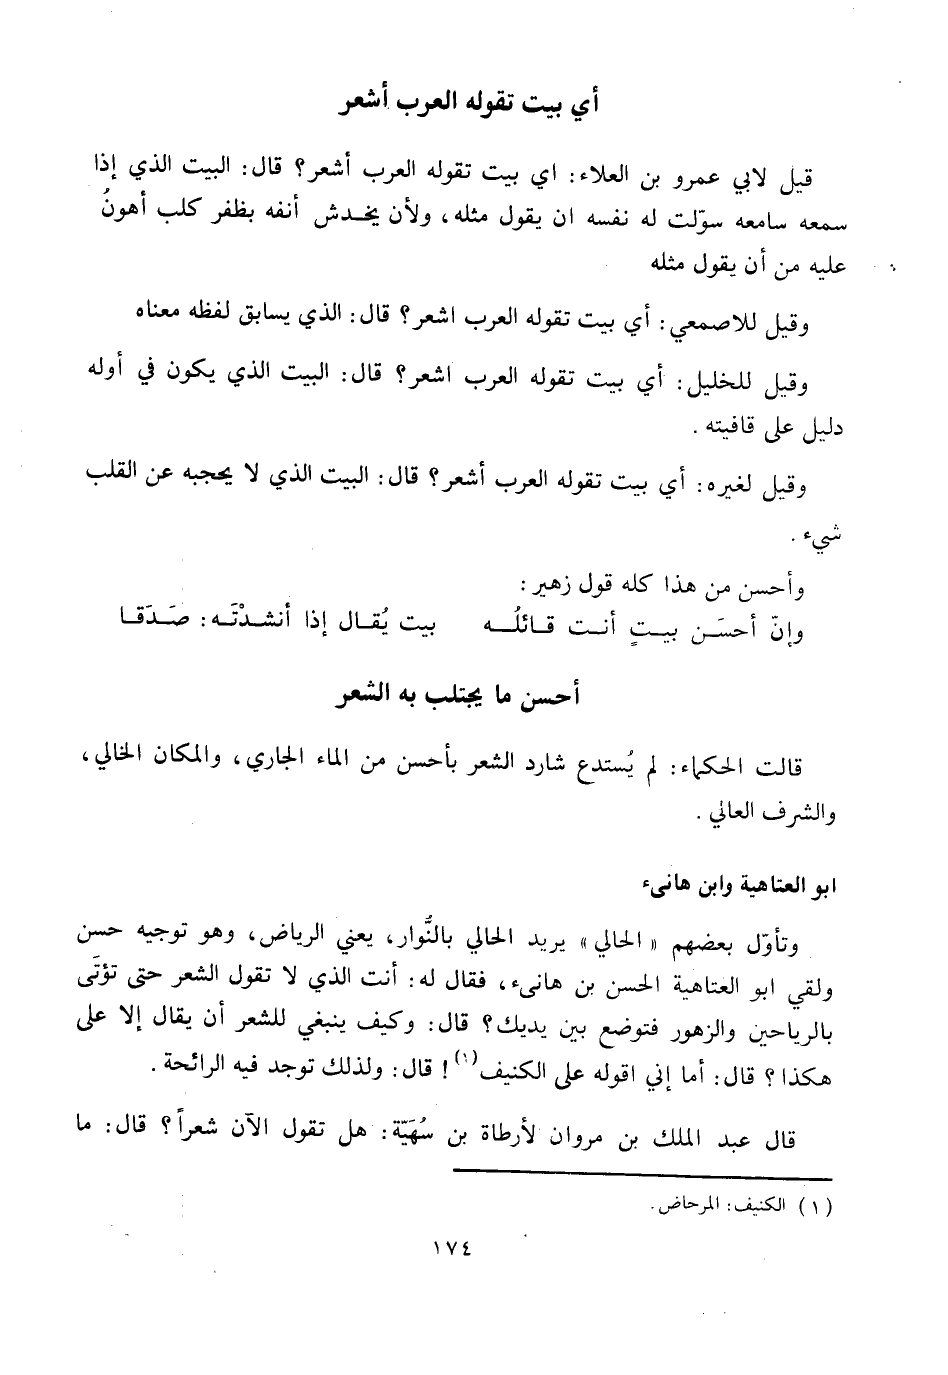 أي بيت تقوله العرب أشعر
قيل لابي عمرو بن العلاء: اي بيت تقوله العرب أشعر؟ قال: البيت الذي إذا
سمعه سامعه سوّلت له نفسه ان يقول مثله، ولأن يخدش أنفه بظفر كلب أهونُ
عليه من أن يقول مثله
وقيل للاصمعي: أي بيت تقوله العرب اشعر؟ قال: الذي يسابق لفظه معناه
وقيل للخليل: أي بيت تقوله العرب اشعر؟ قال: البيت الذي يكون في أوله
دليل على قافيته.
وقيل لغيره: أي بيت تقوله العرب أشعر؟ قال: البيت الذي لا يحجبه عن القلب
شيء.
وأحسن من هذا كله قول زهير:
وإنّ أحسَن بيتٍ أنت قائلُه بيت يُقال إذا أنشدْتَه: صَدَقا
أحسن ما يجتلب به الشعر
قالت الحكماء: لم يُستدع شارد الشعر بأحسن من الماء الجاري، والمكان الخالي،
والشرف العالي.
ابو العتاهية وابن هانىء
وتأوّل بعضهم «الحالي» يريد الحالي بالنُّوار، يعني الرياض، وهو توجيه حسن
ولقي ابو العتاهية الحسن بن هانىء، فقال له: أنت الذي لا تقول الشعر حتى تؤتَى
بالرياحين والزهور فتوضع بين يديك؟ قال: وكيف ينبغي للشعر أن يقال إلا على
هكذا؟ قال: أما إني اقوله على الكنيف(١)! قال: ولذلك توجد فيه الرائحة.
قال عبد الملك بن مروان لأرطاة بن سُهَيّة: هل تقول الآن شعراً؟ قال: ما
(١) الكنيف: المرحاض.
١٧٤